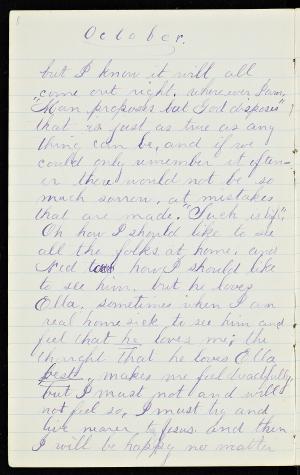 October.
but I know it will all
come out right. where ever I am,
"Man proposes but God disposes"
that is just as true as any
thing can be, and if we
could only remember it often-
er there would not be so
much sorrow, at mistakes
that are made. "Such is life".
Oh how I should like to see
all the folks at home, and
Ned how I should like
to see him. but he loves
Ella. sometimes when I am
real homesick to see him and
feel that he loves me; the
thought that he loves Ella
best, makes me feel dreadfully,
but I must not and will
not feel so, I must try and
live nearer to Jesus. and then
I will be happy no matter